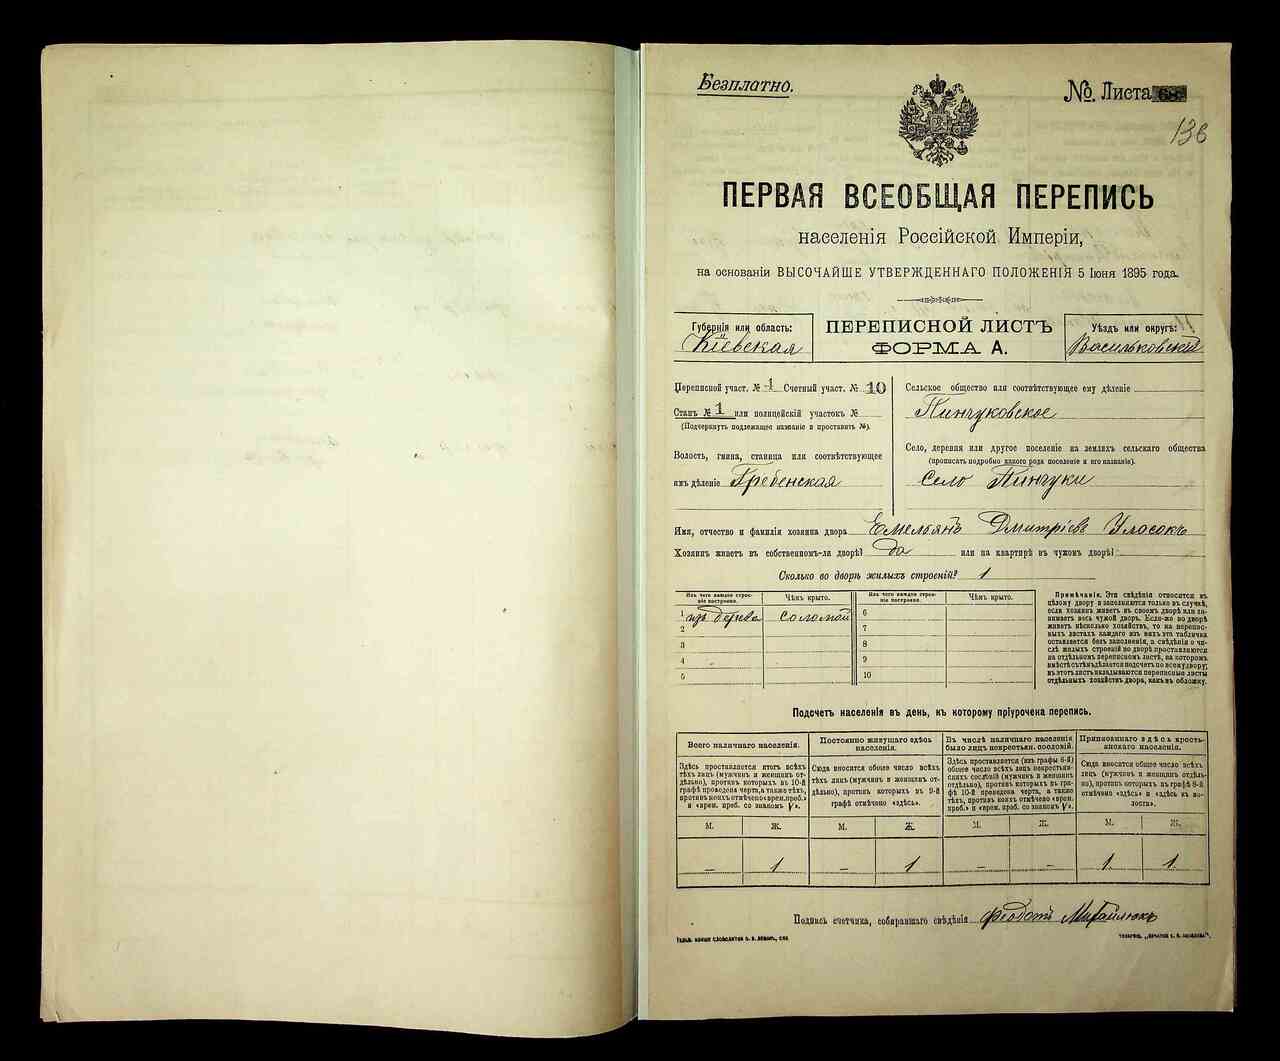 Безплатно.
№. Листа 68
136
ПЕРВАЯ ВСЕОБЩАЯ ПЕРЕПИСЬ
населенія Россійской Имперіи,
на основаніи ВЫСОЧАЙШЕ УТВЕРЖДЕННАГО ПОЛОЖЕНІЯ 5 Іюня 1895 года.
Губернія или область:
Кіевская
ПЕРЕПИСНОЙ ЛИСТЪ
ФОРМА А.
Уѣздъ или округъ:
Васильковскій
Переписной участ. № 1 Счетный участ. № 10
Станъ № 1 или полицейскій участокъ №
(Подчеркнуть подлежащее названіе и проставить №).
Волость, гмина, станица или соотвѣтствующее
имъ дѣленіе Гребенская
Сельское общество или соотвѣтствующее ему дѣленіе
Пинчуковское
Село, деревня или другое поселеніе на земляхъ сельскаго общества
(прописать подробно какого рода поселеніе и его названіе).
село Пинчуки
Имя, отчество и фамилія хозяина двора Емельянъ Дмитріевъ Уласокъ
Хозяинъ живетъ въ собственномъ-ли дворѣ? да или на квартирѣ въ чужомъ дворѣ?
Сколько во дворѣ жилыхъ строеній? 1
Изъ чего каждое строе-
ніе построено.
Чѣмъ крыто.
Изъ чего каждое строе-
ніе построено.
Чѣмъ крыто.
1 изъ дерева соломой 6
2 7
3 8
4 9
5 10
Примѣчаніе. Эти свѣдѣнія относятся къ
цѣлому двору и заполняются только въ случаѣ,
если хозяинъ живетъ въ своемъ дворѣ или за-
нимаетъ весь чужой дворъ. Если-же во дворѣ
живетъ нѣсколько хозяйствъ, то на перепис-
ныхъ листахъ каждаго изъ нихъ эта табличка
оставляется безъ заполненія, а свѣдѣнія о чи-
слѣ жилыхъ строеній во дворѣ проставляются
на отдѣльномъ переписномъ листѣ, на которомъ
вмѣстѣ съ тѣмъ дѣлается подсчетъ по всему двору;
въ этотъ листъ вкладываются переписные листы
отдѣльныхъ хозяйствъ двора, какъ въ обложку.
Подсчетъ населенія въ день, къ которому пріурочена перепись.
Всего наличнаго населенія.
Постоянно живущаго здѣсь
населенія.
Въ числѣ наличнаго населенія
было лицъ некрестьян. сословій.
Приписаннаго здѣсь кресть-
янскаго населенія.
Здѣсь проставляется итогъ всѣхъ
тѣхъ лицъ (мужчинъ и женщинъ от-
дѣльно), противъ которыхъ въ 10-й
графѣ проведена черта, а также тѣхъ,
противъ коихъ отмѣчено «врем. преб.»
и «врем. преб. со знакомъ V».
Сюда вносится общее число всѣхъ
тѣхъ лицъ (мужчинъ и женщинъ от-
дѣльно), противъ которыхъ въ 9-й
графѣ отмѣчено «здѣсь».
Здѣсь проставляется (изъ графы 4-й)
общее число всѣхъ лицъ некрестьян-
скихъ сословій (мужчинъ и женщинъ
отдѣльно), противъ которыхъ въ гра-
фѣ 10-й проведена черта, а также
тѣхъ, противъ коихъ отмѣчено «врем.
преб.» и «врем. преб. со знакомъ V».
Сюда вносится общее число всѣхъ
лицъ (мужчинъ и женщинъ отдѣль-
но), противъ которыхъ въ графѣ 8-й
отмѣчено «здѣсь» и «здѣсь въ во-
лости».
М. Ж. М. Ж. М. Ж. М. Ж.
— 1 — 1 — — 1 1
Подпись счетчика, собиравшаго свѣдѣнія Феодотъ Михайлюкъ